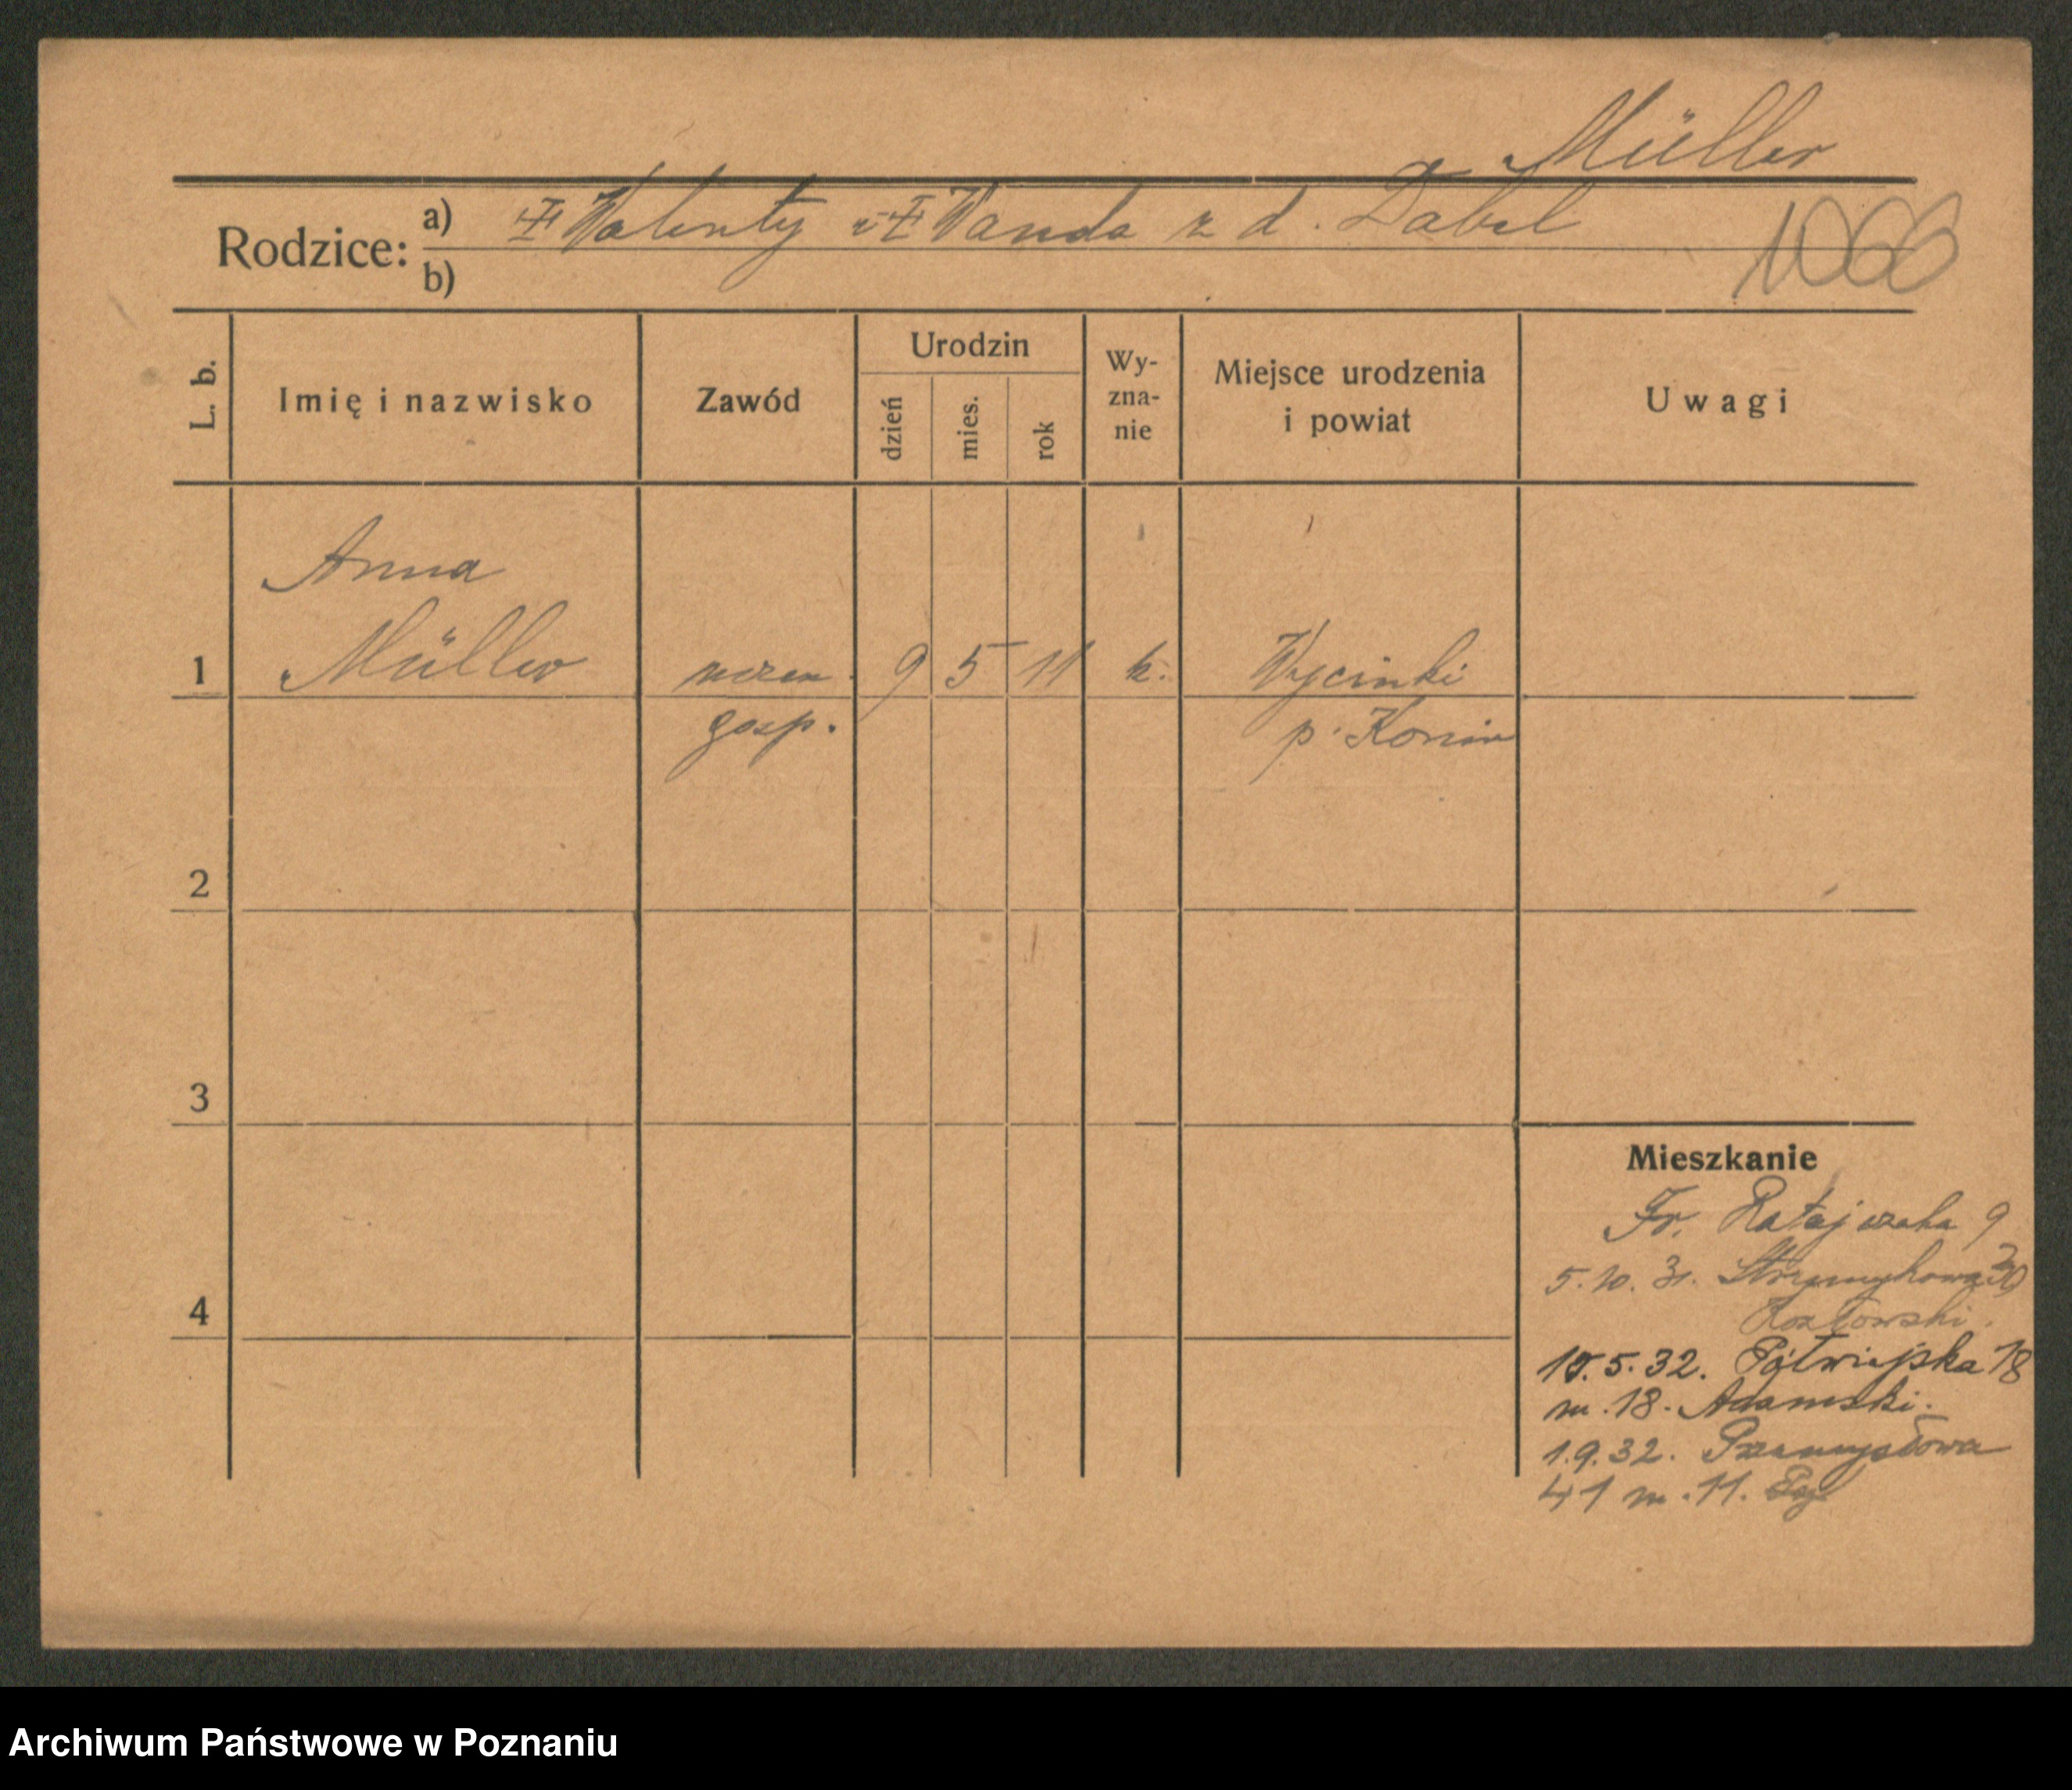 Müller
Rodzice: a) Walenty i Wanda z d. Dabel
1066
b)
L. b.
Imię i nazwisko
Zawód
Urodzin
dzień
mies.
rok
Wy-
zna-
nie
Miejsce urodzenia
i powiat
Uwagi
Anna
1 Müller uczen. 9 5 11 k. Wycinki
gosp. p. Konin
2
3
4
Mieszkanie
Fr. Ratajczaka 9
5.10.31. Strumykowa
Kozłowski.
5.32. Półwiejska 18
m. 18. Adamski.
1.9.32. Przemysłowa
41 m. 11.
Archiwum Państwowe w Poznaniu